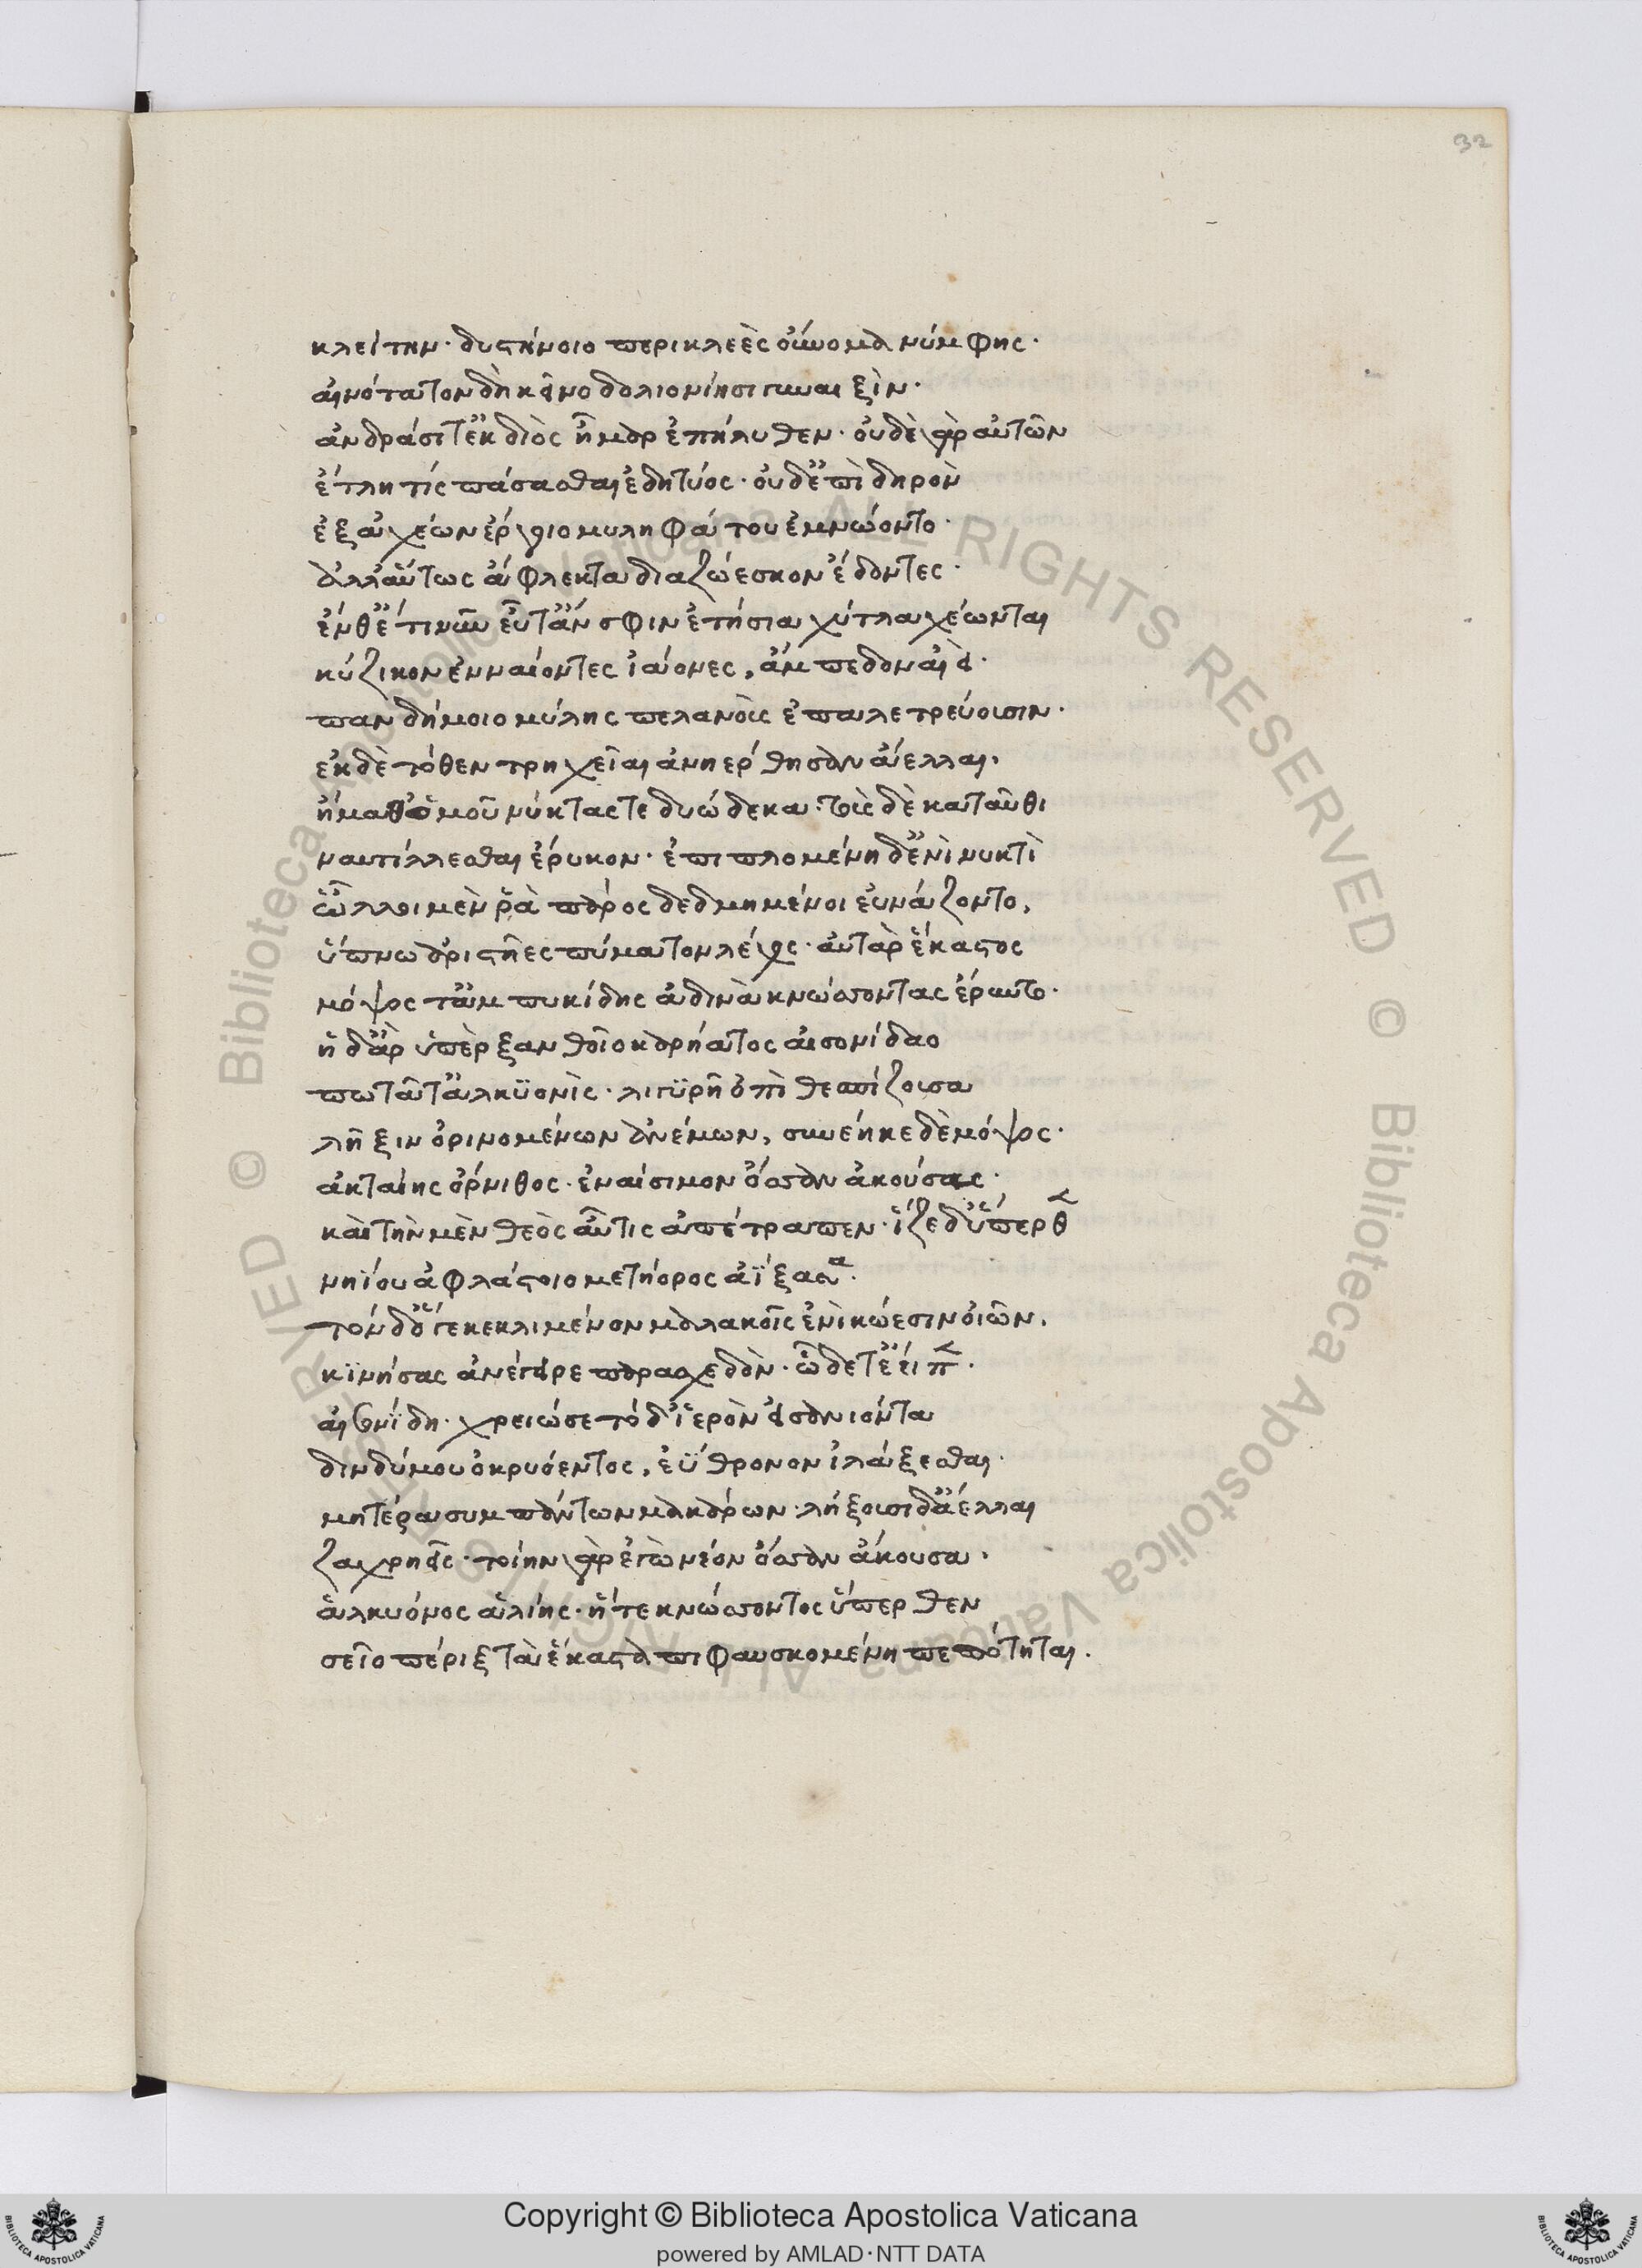 32
κλείτην· δυστήνοιο περικλεὲς οὔνομα νύμφης·
αἰνότατον δὴ κεῖνο δολιονίῃσι γυναιξὶν·
ἀνδράσι τ' ἐκ διὸς ἦμαρ ἐπήλυθεν· οὐδὲ γὰρ αὐτῶν
ἔτλη τίς πάσασθαι ἐδητύος· οὐδ' ἐπὶ δηρὸν
ἐξ ἀχέων ἔργοιο μυληφάτου ἐμνώοντο·
ἀλλ' αὔτως ἄφλεκτα διαζώεσκον ἔδοντες·
ἔνθ' ἔτι νῦν εὖτ' ἄν σφιν ἐτήσια χύτλα χέωνται
κύζικον ἐνναίοντες ἰάονες, ἄμπεδον αἰεὶ·
πανδήμοιο μύλης πελανοὺς ἐπαλετρεύουσιν·
ἐκ δὲ τόθεν τρηχεῖαι ἀνηέρθησαν ἄελλαι·
ἤμαθ' ὁμοῦ νύκτας τε δυώδεκα· τοὺς δὲ καταῦθι
ναυτίλλεσθαι ἔρυκον· ἐπιπλομένῃ δ' ἐνὶ νυκτὶ
ὧλλοι μέν ῥα πάρος δεδμημένοι εὐνάζοντο,
ὕπνω ἀριστῆες πύματον λέχος· αὐτὰρ ἕκαστος
μόψος τ' ἀμπυκίδης ἀδινὰ κνώσσοντας ἔρυντο·
ἡ δ' ἄρ ὑπὲρ ξανθοῖο καρήατος αἰσονίδαο
πωτᾶτ' ἀλκϋονὶς· λιγϋρῆ ὀπὶ θεσπίζουσα
λῆξιν ὀρινομένων ἀνέμων, συνέηκε δὲ μόψος·
ἀκταίης ὄρνιθος· ἐναίσιμον ὄσσαν ἀκούσας·
καὶ τὴν μὲν θεὸς αὖτις ἀπέτραπεν· ἷζε δ' ὕπερθ
νηΐου ἀφλάστοιο μετήορος ἀΐξασα·
τὸν δ' ὅγε κεκλιμένον μαλακοῖς ἐνὶ κώεσιν οἰῶν.
κϊνήσας ἀνέγειρε παρασχεδὸν· ὧδέ τ' ἔειπ·
αἰσονίδη· χρειώ σε τό δ' ἱερὸν εἰσανιόντα
δινδύμου ὀκρυόεντος, ἐΰθρονον ἱλάξεσθαι·
μητέρα συμπάντων μακάρων· λήξουσι δ' ἄελλαι
ζαχρηεῖς· τοίην γὰρ ἐγὼ νέον ὄσσαν ἄκουσα·
ἁλκυόνος ἁλίης· ἥτε κνώσσοντος ὕπερθεν
σεῖο πέριξ τὰ ἕκαστα πιφαυσκομένη πεπότηται.
Copyright © Biblioteca Apostolica Vaticana
powered by AMLAD·NTT DATA